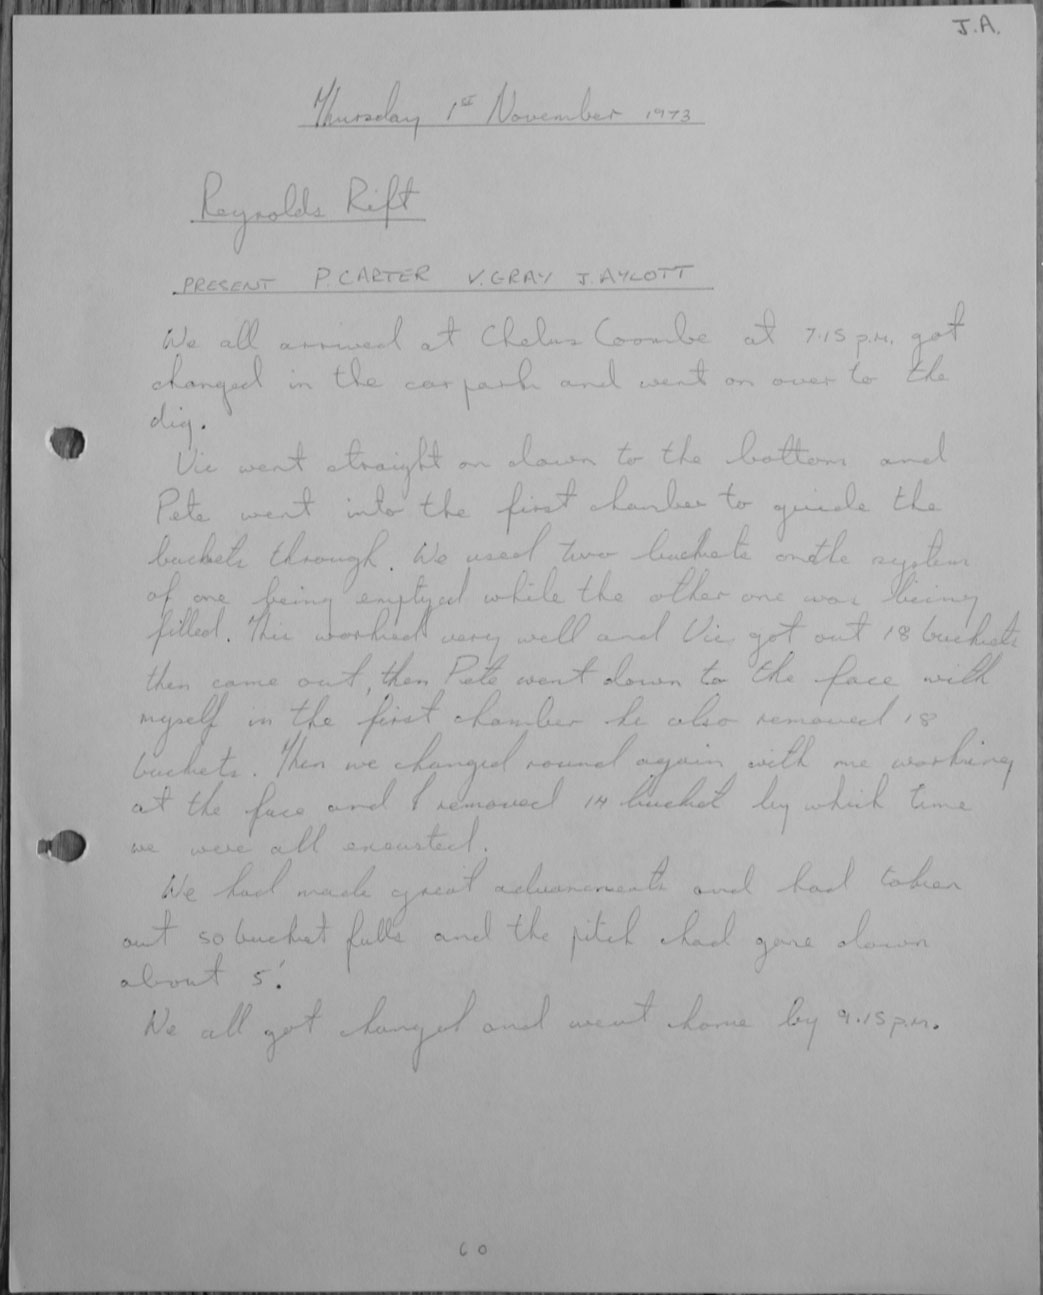 J.A.
Thursday 1st November 1973
Reynolds Rift
PRESENT P. CARTER V. GRAY J. AYLOTT
We all arrived at Chelms Coombe at 7.15 p.m. got
changed in the car park and went on over to the
dig.
Vic went straight on down to the bottom and
Pete went into the first chamber to guide the
buckets through. We used two buckets on the system
of one being emptyed while the other one was being
filled. This worked very well and Vic got out 18 buckets
then came out, then Pete went down to the face with
myself in the first chamber he also removed 18
buckets. Then we changed round again with me working
at the face and I removed 14 bucket by which time
we were all exausted.
We had made great advancements and had taken
out 50 bucket fulls and the pitch had gone down
about 5'.
We all got changed and went home by 9.15 p.m.
60